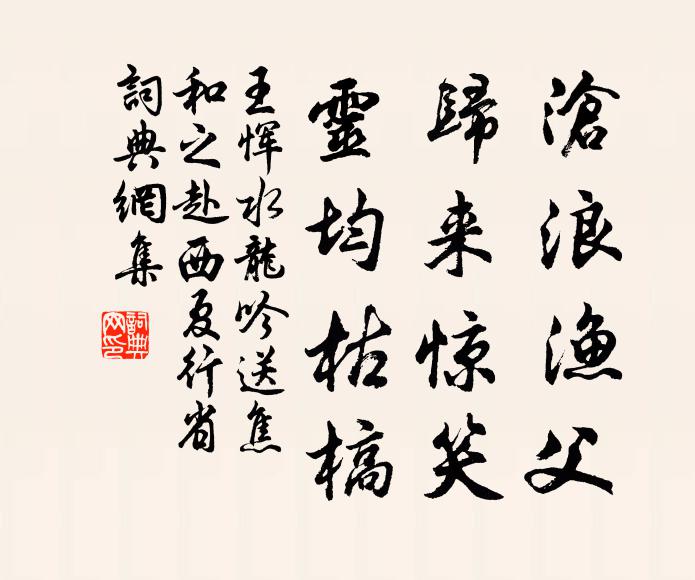 滄浪渔父
歸来惊笑
靈均枯槁
王恽水龍吟送焦
和之赴西夏行省
詞典網集
詞典網印